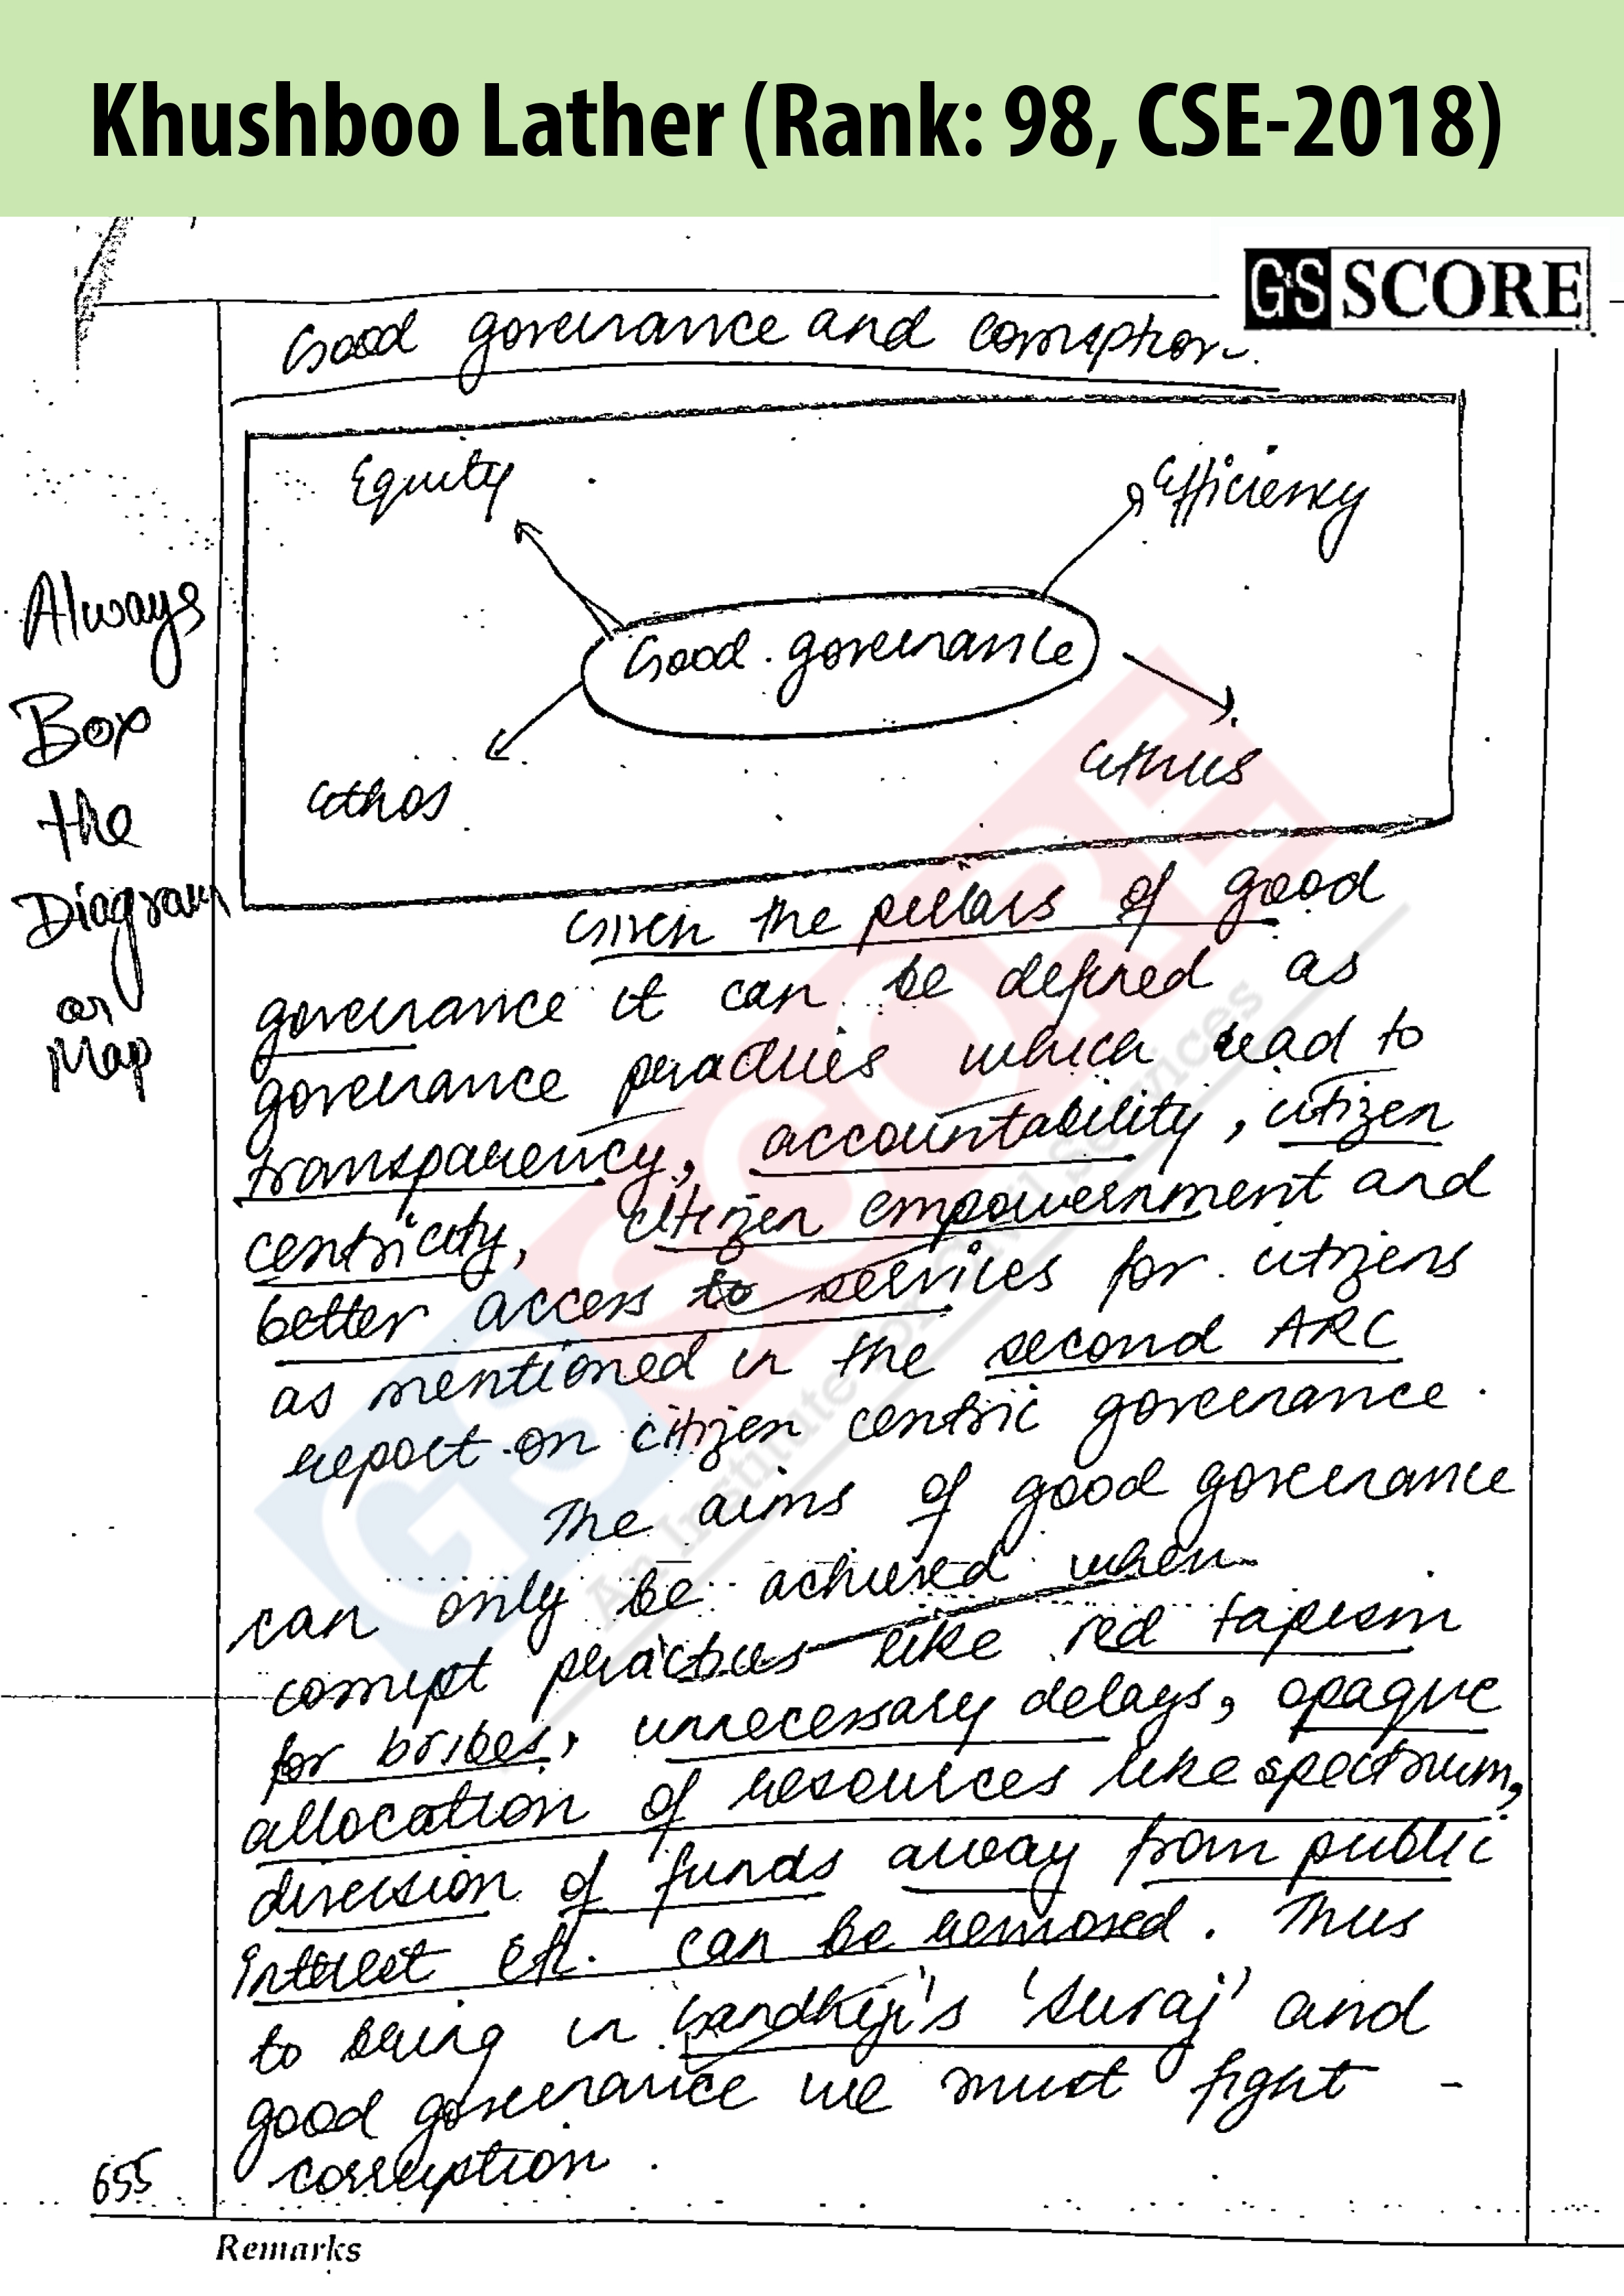 Khushboo Lather (Rank: 98, CSE-2018)
GS SCORE
Good governance and corruption.
Equity
Efficiency
Good governance
Ethos
Ethics
Always
Box
the
Diagram
or
Map
Given the pillars of good
governance it can be defined as
governance practices which lead to
transparency, accountability, citizen
centricity, citizen empowernment and
better access to services for citizens
as mentioned in the second ARC
report on citizen centric governance.
The aims of good governance
can only be achieved when
corrupt practices like red tapism
for bribes, unnecessary delays, opaque
allocation of resources like spectrum,
diversion of funds away from public
interest etc. can be removed. Thus
to bring in Gandhiji's 'Suraj' and
good governance we must fight
corruption.
655
Remarks
GS SCORE
An Institute for Civil Services